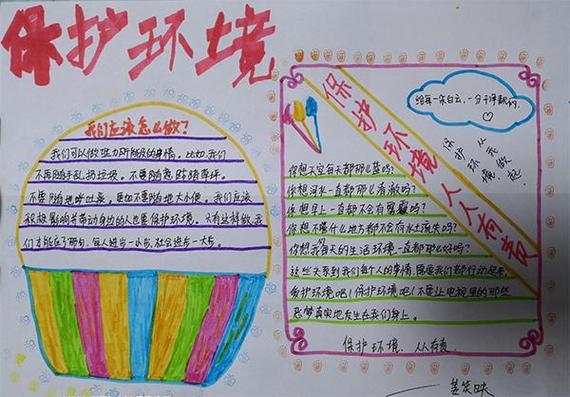 保护环境
我们应该怎么做?
我们可以做些力所能及的事情。比如,我们
不再随手乱扔垃圾。不要随意践踏草坪。
不要随地呼吐痰。更加不要随地大小便。我们应该
积极影响并带动身边的人也要保护环境。只有这样做,我
们才能在了那句,每人进步一小步,社会进步一大步。
保护环境人人有责
给我一朵白云,一分干净靓的
保护环境,从我做起
你想天空每天都那么蓝吗?
你想河水一直都那么清澈吗?
你想早上一直都不会有雾霾吗?
你想不管什么地方都不会有水土流失吗?
你想我们每天的生活环境一直都那么好吗?
这些关系到我们每个人的事情,需要我们都行动起来。
保护环境吧!保护环境吧!不要让电视里的那些
恶梦真实地发生在我们身上。
保护环境,人人有责